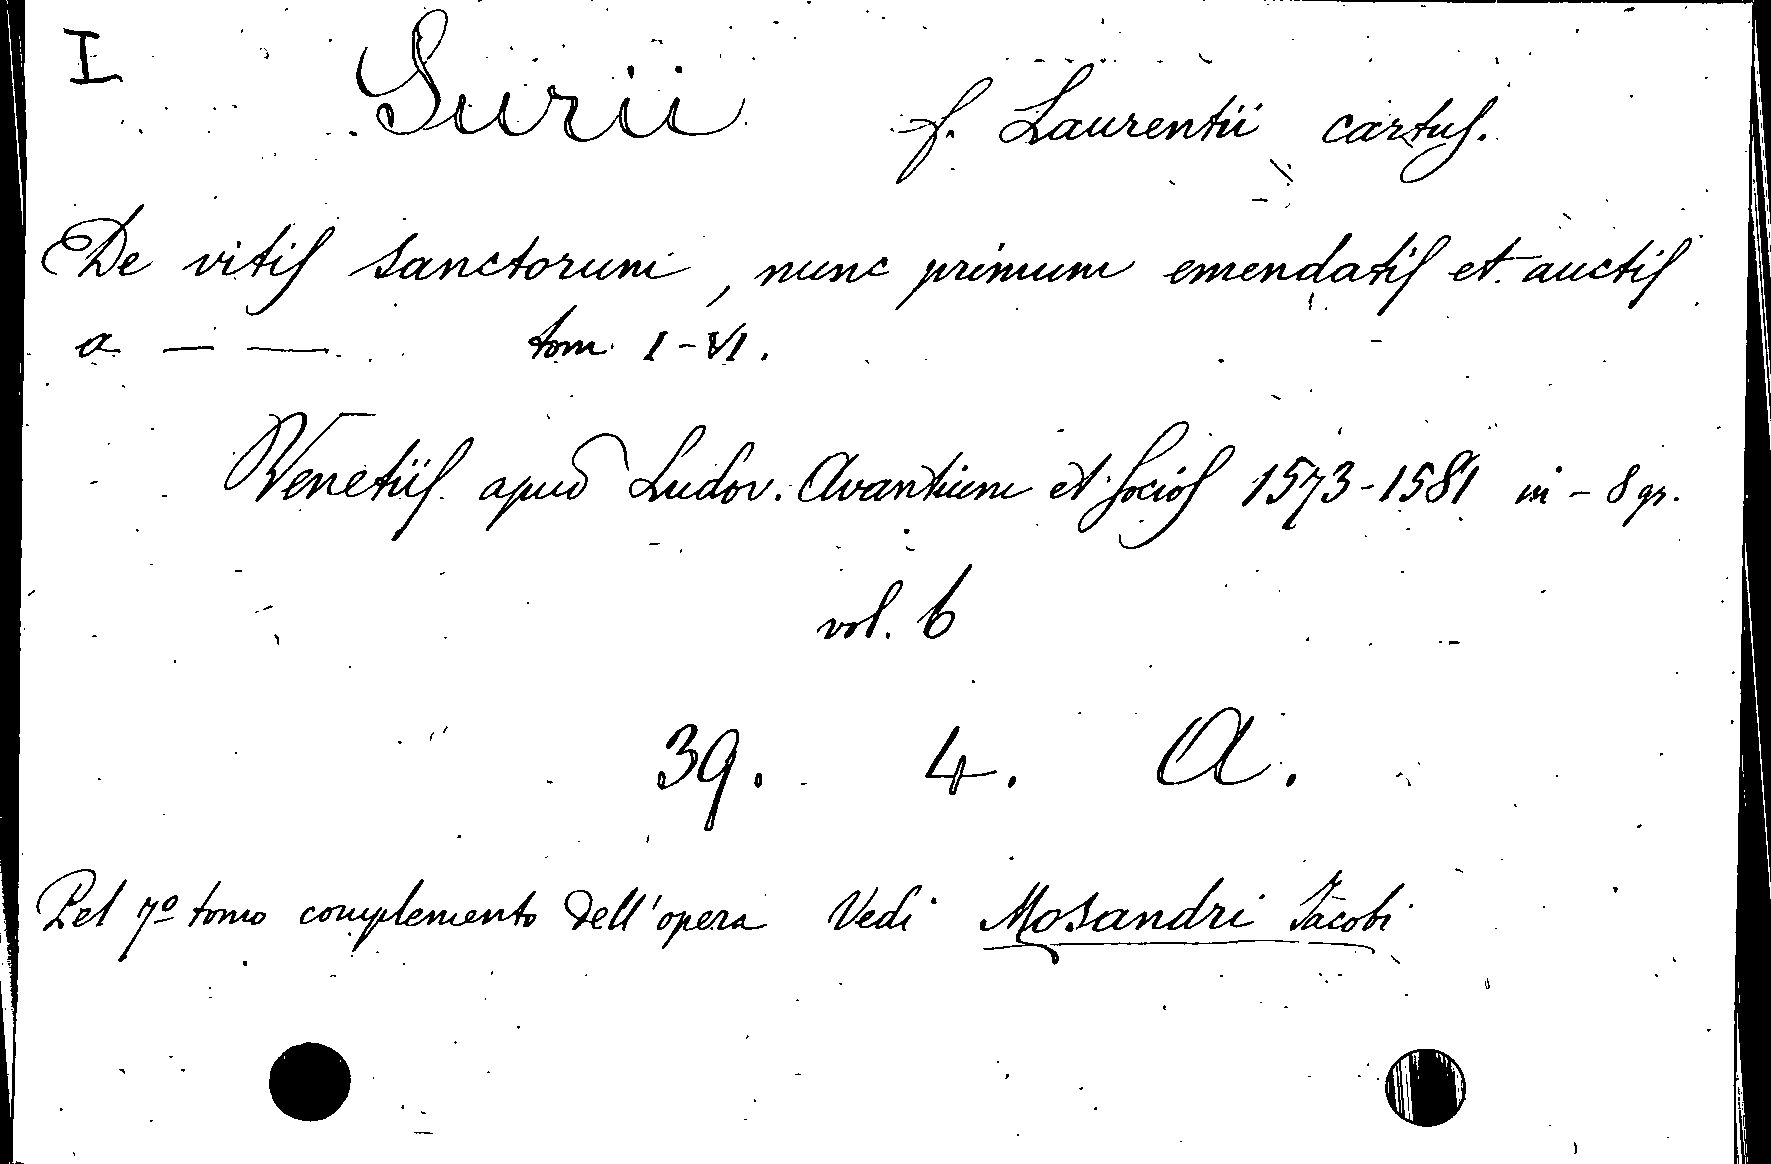 I
Surii f. Laurentii cartus.
De vitis sanctorum, nunc primum emendatis et auctis
a — — tom. I-VI.
Venetiis apud Ludov. Avantium et socios 1573-1581 in-8 gr.
vol. 6
39. 4. A.
Pel 7º tomo complemento dell'opera Vedi Mosandri Jacobi